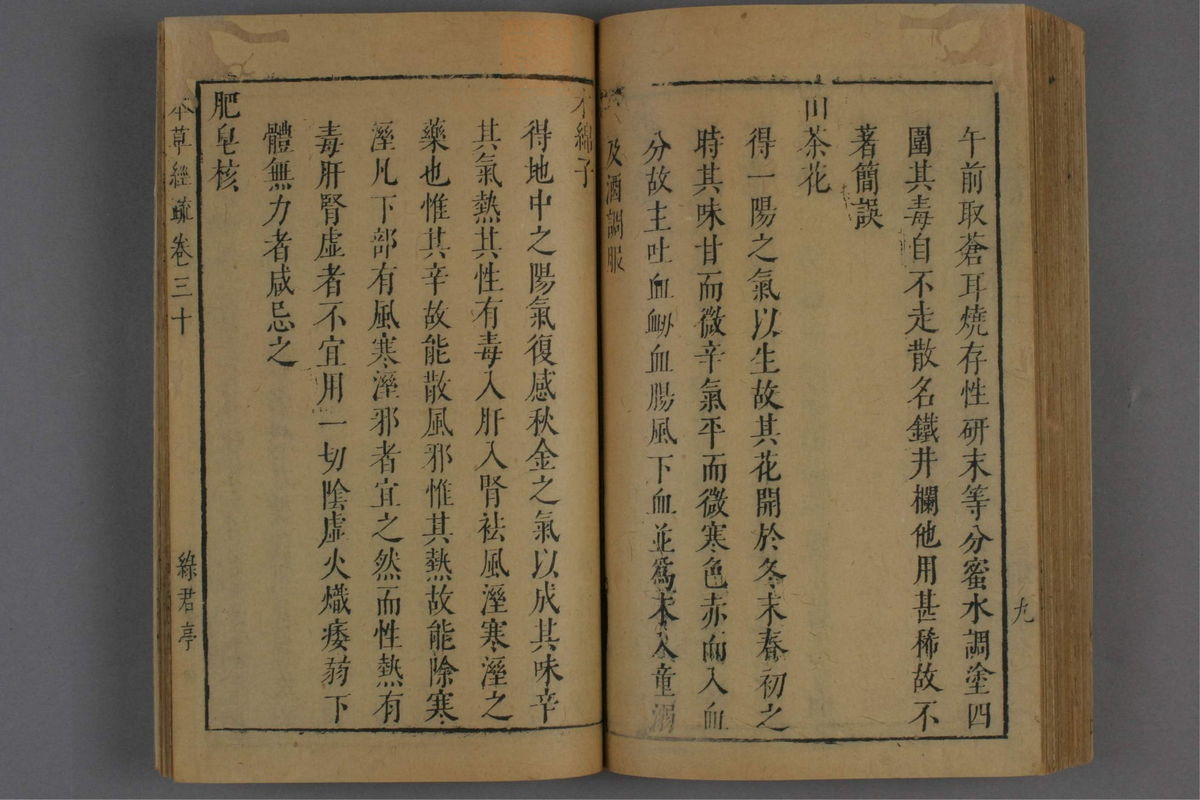 午前取蒼耳燒存性研末等分蜜水調塗四
圍其毒自不走散名鐵井欄他用甚稀故不
著簡誤
山茶花
得一陽之氣以生故其花開於冬末春初之
時其味甘而微辛氣平而微寒色赤而入血
分故主吐血衂血腸風下血並爲末入童溺
及酒調服
木綿子
得地中之陽氣復感秋金之氣以成其味辛
其氣熱其性有毒入肝入腎祛風溼寒溼之
藥也惟其辛故能散風邪惟其熱故能除寒
溼凡下部有風寒溼邪者宜之然而性熱有
毒肝腎虛者不宜用一切陰虛火熾痿弱下
體無力者咸忌之
肥皂核
本草經疏卷三十
綠君亭
九